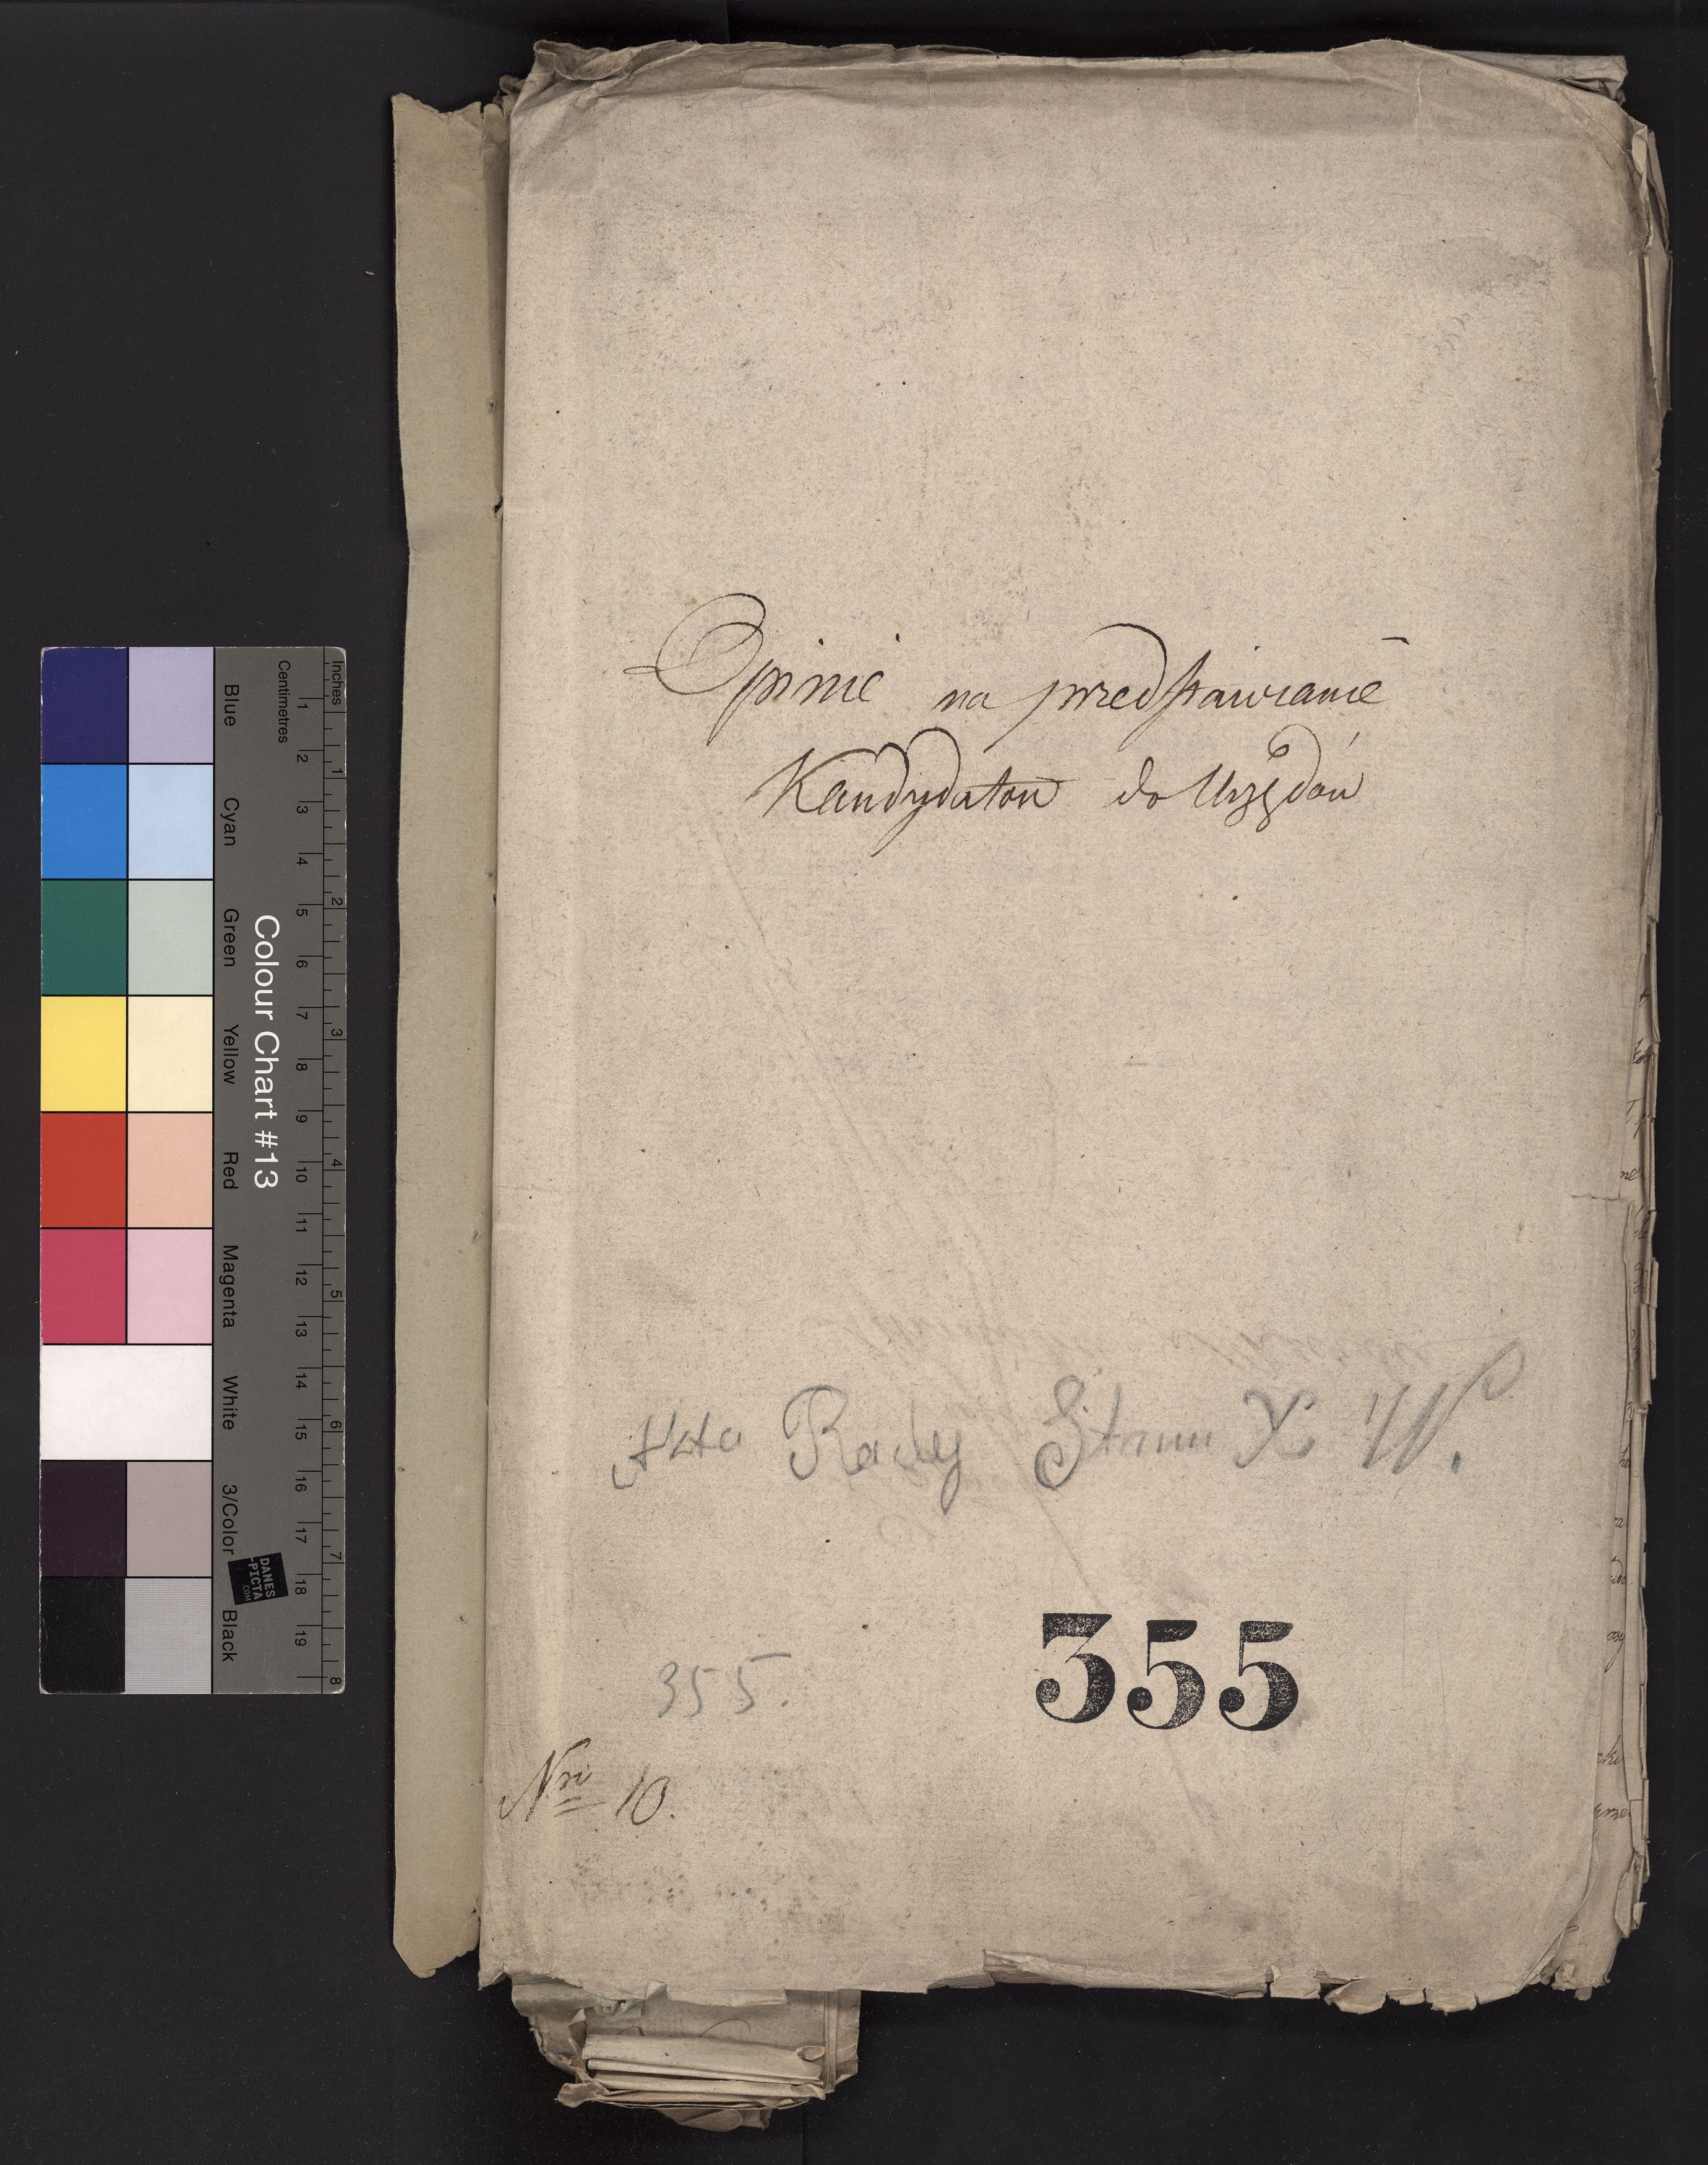 Opinie na przedstawianie
Kandydatów do Urzędów
Akta Rady Stanu X W.
355.
355
Nri 10.
Colour Chart #13
Blue
Cyan
Green
Yellow
Red
Magenta
White
3/Color
Black
Inches
Centimetres
1 2 3 4 5 6 7 8 9 10 11 12 13 14 15 16 17 18 19
1 2 3 4 5 6 7 8
DANES
PICTA
.COM